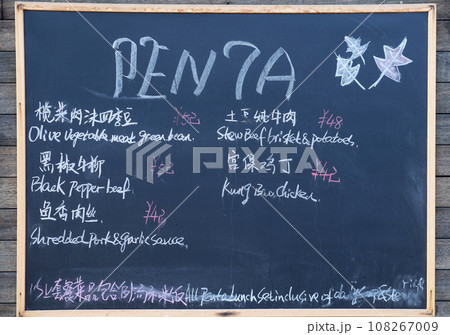 PENTA
榄菜肉沫四季豆
Olive vegetable meat green bean.
黑椒牛柳
Black Pepper beef.
鱼香肉丝 ¥42
Shredded Pork & Garlic sauce.
土豆炖牛肉 ¥48
Stew Beef brisket & potatoes.
宫保鸡丁 ¥42
Kung Bao Chicken.
以上套餐菜品包含例汤米饭 All Penta Lunch Set inclusive of rice
108267009